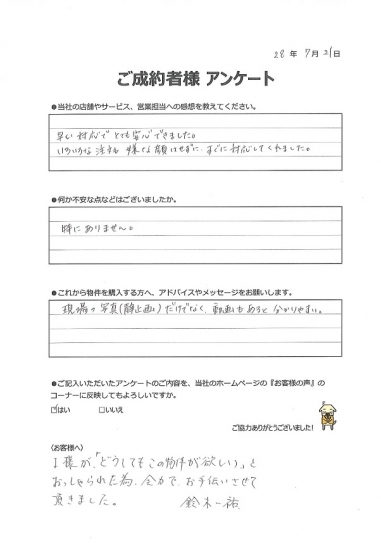 28 年 7月 31日
ご成約者様 アンケート
●当社の店舗やサービス、営業担当への感想を教えてください。
早い対応でとても安心できました。
いろいろな注文も嫌な顔はせずに、すぐに対応してくれました。
●何か不安な点などはございましたか。
特にありません。
●これから物件を購入する方へ、アドバイスやメッセージをお願いします。
現場の写真(静止画)だけでなく、動画もあると分かりやすい。
●ご記入いただいたアンケートのご内容を、当社のホームページの『お客様の声』の
コーナーに反映してもよろしいですか。
☑はい □いいえ
ご協力ありがとうございました!
〈お客様へ〉
I様が、「どうしてもこの物件が欲しい」と
おっしゃられた為、全力で、お手伝いさせて
頂きました。 鈴木一祐